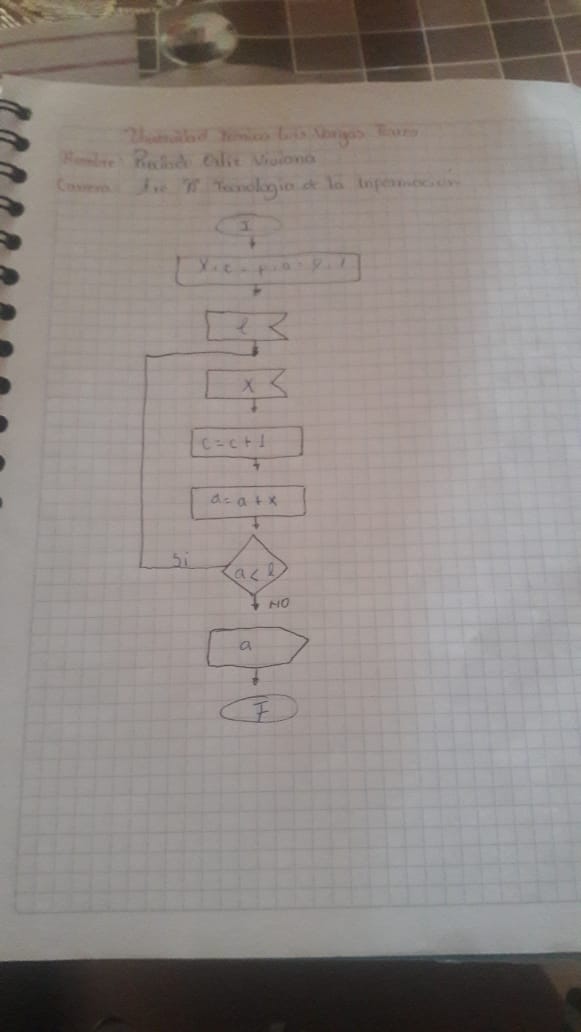 Universidad Tecnica Luis Vargas Torres
Nombre: Ortiz Viviana
Carrera: 1ro "B" Tecnología de la Información
I
l
x
c = c + 1
a = a + x
a < l
Si
NO
a
F